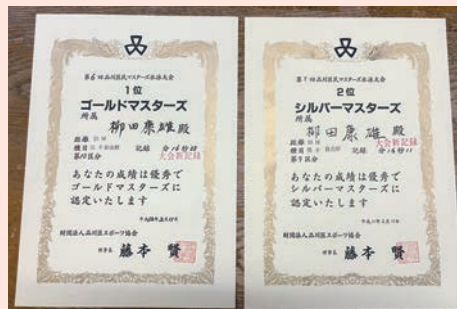 第6回品川区民マスターズ水泳大会
1位
ゴールドマスターズ
所属
柳田康雄殿
距離
種目 記録 分16秒
第10区分 大会新記録
あなたの成績は優秀で
ゴールドマスターズに
認定いたします
財団法人品川区スポーツ協会
理事長 藤本 賢
第7回品川区民マスターズ水泳大会
2位
シルバーマスターズ
所属
柳田康雄殿
距離
種目 記録 分16秒11
第9区分 大会新記録
あなたの成績は優秀で
シルバーマスターズに
認定いたします
財団法人品川区スポーツ協会
理事長 藤本 賢